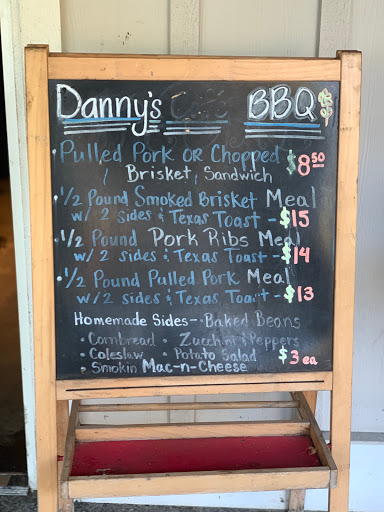 Danny's Café BBQ
Pulled Pork OR Chopped $8.50
Brisket, Sandwich
1/2 Pound Smoked Brisket Meal
w/ 2 sides & Texas Toast - $15
1/2 Pound Pork Ribs Meal
w/ 2 sides & Texas Toast - $14
1/2 Pound Pulled Pork Meal
w/ 2 sides & Texas Toast - $13
Homemade Sides - Baked Beans
• Cornbread • Zucchini & Peppers
• Coleslaw • Potato Salad $3 ea
• Smokin Mac-n-Cheese